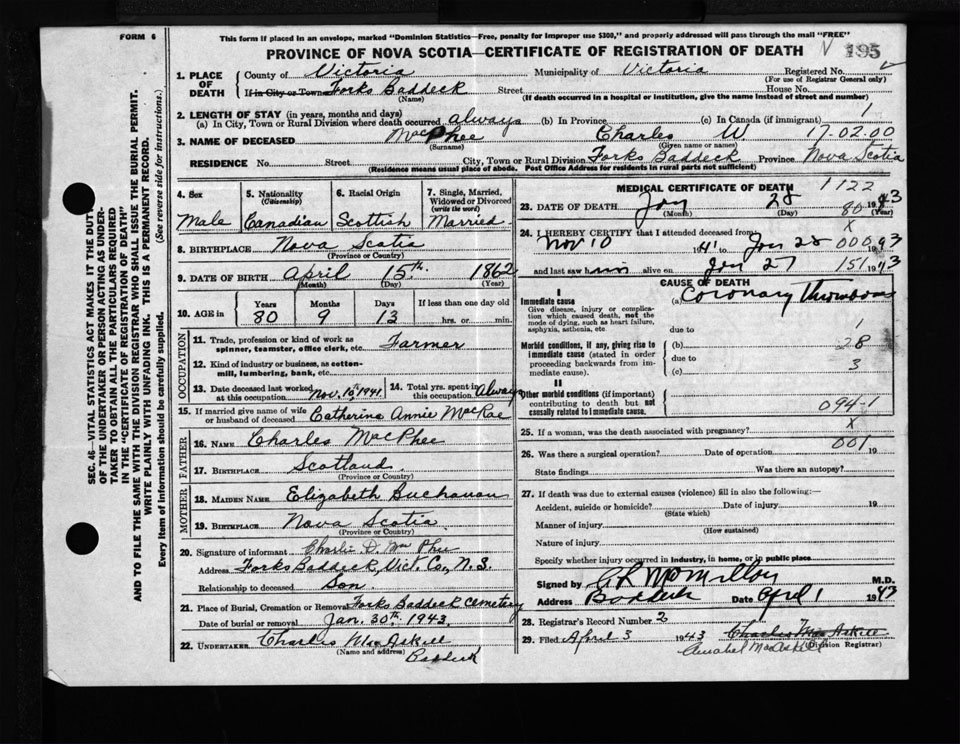 FORM 6
This form if placed in an envelope, marked "Dominion Statistics—Free, penalty for improper use $300," and properly addressed will pass through the mail "FREE"
PROVINCE OF NOVA SCOTIA—CERTIFICATE OF REGISTRATION OF DEATH
195
1. PLACE OF DEATH
County of Victoria Municipality of Victoria Registered No.
(For use of Registrar General only)
If in City or Town Forks Baddeck Street House No.
(Name) (If death occurred in a hospital or institution, give the name instead of street and number)
2. LENGTH OF STAY (in years, months and days)
(a) In City, Town or Rural Division where death occurred always (b) In Province (c) In Canada (if immigrant) 1
3. NAME OF DECEASED MacPhee Charles W. 17-02-00
(Surname) (Given name or names)
RESIDENCE No. Street City, Town or Rural Division Forks Baddeck Province Nova Scotia
(Residence means usual place of abode. Post Office Address for residents in rural parts not sufficient)
4. Sex Male
5. Nationality (Citizenship) Canadian
6. Racial Origin Scottish
7. Single, Married, Widowed or Divorced (write the word) Married
8. BIRTHPLACE Nova Scotia
(Province or Country)
9. DATE OF BIRTH April 15th 1862
(Month) (Day) (Year)
10. AGE in Years 80 Months 9 Days 13 If less than one day old
hrs. or min.
OCCUPATION
11. Trade, profession or kind of work as spinner, teamster, office clerk, etc. Farmer
12. Kind of industry or business, as cotton-mill, lumbering, bank, etc.
13. Date deceased last worked at this occupation Nov. 10th 1941.
14. Total yrs. spent in this occupation Always
15. If married give name of wife or husband of deceased Catherine Annie MacRae
FATHER
16. NAME Charles MacPhee
17. BIRTHPLACE Scotland.
(Province or Country)
MOTHER
18. MAIDEN NAME Elizabeth Buchanan
19. BIRTHPLACE Nova Scotia
(Province or Country)
20. Signature of informant Charlie D. MacPhee
Address Forks Baddeck, Vict. Co., N.S.
Relationship to deceased Son.
21. Place of Burial, Cremation or Removal Forks Baddeck Cemetery
Date of burial or removal Jan. 30th. 1943.
22. UNDERTAKER Charles MacAskill
(Name and address) Baddeck
MEDICAL CERTIFICATE OF DEATH 1122
23. DATE OF DEATH Jan 28 1943
(Month) (Day) (Year)
80
24. I HEREBY CERTIFY that I attended deceased from:
X
Nov 10 1941 to Jan 28 000 1943
and last saw him alive on Jan 27 151 1943
CAUSE OF DEATH
I
Immediate cause (a) Coronary Thrombosis
Give disease, injury or complication which caused death, not the mode of dying, such as heart failure, asphyxia, asthenia, etc.
due to 1
Morbid conditions, if any, giving rise to immediate cause (stated in order proceeding backwards from immediate cause).
(b) 28
due to 3
(c)
II
Other morbid conditions (if important) contributing to death but not causally related to immediate cause.
094-1
25. If a woman, was the death associated with pregnancy? X
26. Was there a surgical operation? Date of operation 001 19
State findings Was there an autopsy?
27. If death was due to external causes (violence) fill in also the following:—
Accident, suicide or homicide? Date of injury 19
(State which)
Manner of injury
(How sustained)
Nature of injury
Specify whether injury occurred in industry, in home, or in public place
Signed by M.D.
Address Baddeck Date April 1 1943
28. Registrar's Record Number 2
29. Filed April 3 1943 Charles MacAskill
Annabel MacAskill
(Division Registrar)
SEC. 46—VITAL STATISTICS ACT MAKES IT THE DUTY
OF THE UNDERTAKER OR PERSON ACTING AS UNDER-
TAKER TO OBTAIN ALL THE PARTICULARS REQUIRED
IN THE "CERTIFICATE OF REGISTRATION OF DEATH"
AND TO FILE THE SAME WITH THE DIVISION REGISTRAR WHO SHALL ISSUE THE BURIAL PERMIT.
WRITE PLAINLY WITH UNFADING INK. THIS IS A PERMANENT RECORD.
Every item of information should be carefully supplied. (See reverse side for instructions.)